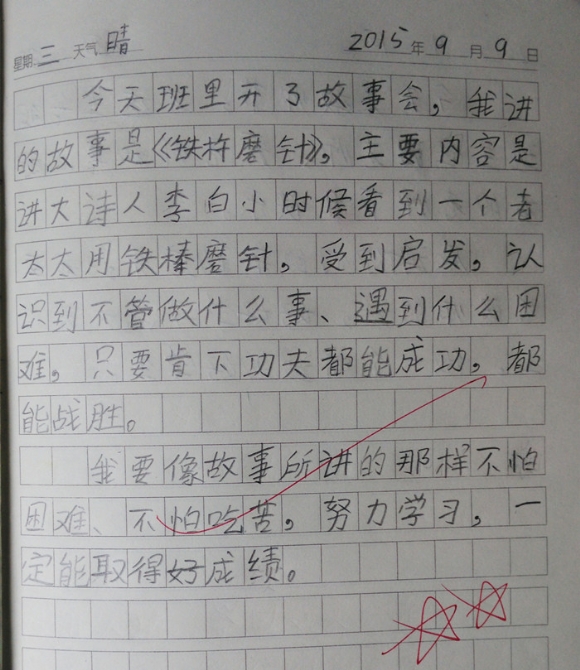 星期 三 天气 晴 2015 年 9 月 9 日
今天班里开了故事会，我讲
的故事是《铁杵磨针》，主要内容是
讲大诗人李白小时候看到一个老
太太用铁棒磨针，受到启发，认
识到不管做什么事、遇到什么困
难，只要肯下功夫都能成功，都
能战胜。
我要像故事所讲的那样不怕
困难、不怕吃苦，努力学习，一
定能取得好成绩。